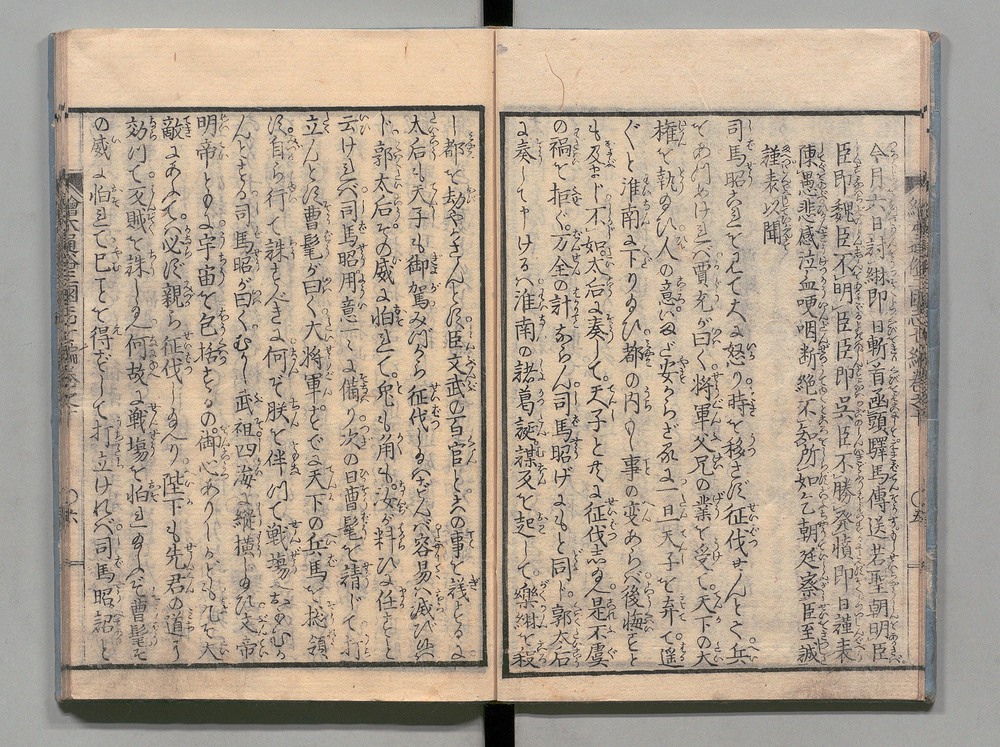 今月六日討綝即日斬首函頭驛馬傳送若聖朝明臣
臣即魏臣不明臣臣即呉臣不勝発憤即日謹表
陳愚悲感泣血哽咽断絶不知所如乞朝廷察臣至誠
謹表以聞
司馬昭これを見て大に怒り時を移さず征伐せんとて兵
をあつめければ賈充が曰く将軍父兄の業を受て天下の大
権を執給ひ人の意いまだ安からざるに一旦天子を弃て遥
々と淮南に下り給ひ都の内もし事の変あらば後悔すと
も及まじ不如太后に奏して天子と共に征伐し給へ是不虞
の禍を拒ぐ万全の計ならん司馬昭げにもと同じ郭太后
に奏して申けるは淮南の諸葛誕謀反を起して樂綝を殺
し都を劫やかさんとす臣文武の百官とこの事を議するに
太后も天子も御駕みづから征代し給はずんば容易く滅び候
じ郭太后その威に怕れて兎も角も汝が料ひに任すと
云ければ司馬昭用意こと〴〵く備り次の日曹髦を請じて打
立んとす曹髦が曰く大将軍すでに天下の兵馬を総領
す自ら行て誅すべきに何ぞ朕を伴ひて戦場におもむか
んとする司馬昭が曰くむかし武祖四海を縦横し給ひ文帝
明帝ともに宇宙を包括するの御心ありしかども凡そ大
敵にあふては必ず親ら征代し給へり陛下も先君の道に
効ひて反賊を誅し給へ何故に戦場を怕れましますぞ曹髦そ
の威に怕れて已ことを得ずして打立ければ司馬昭詔と